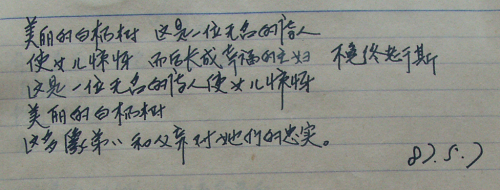 美丽的白杨树 这是一位无名的诗人
使女儿惊讶 而后长成幸福的主妇 不免终老于斯
这是一位无名的诗人使女儿惊讶
美丽的白杨树
这多像弟〃和父亲对她们的忠实。
87.5.7